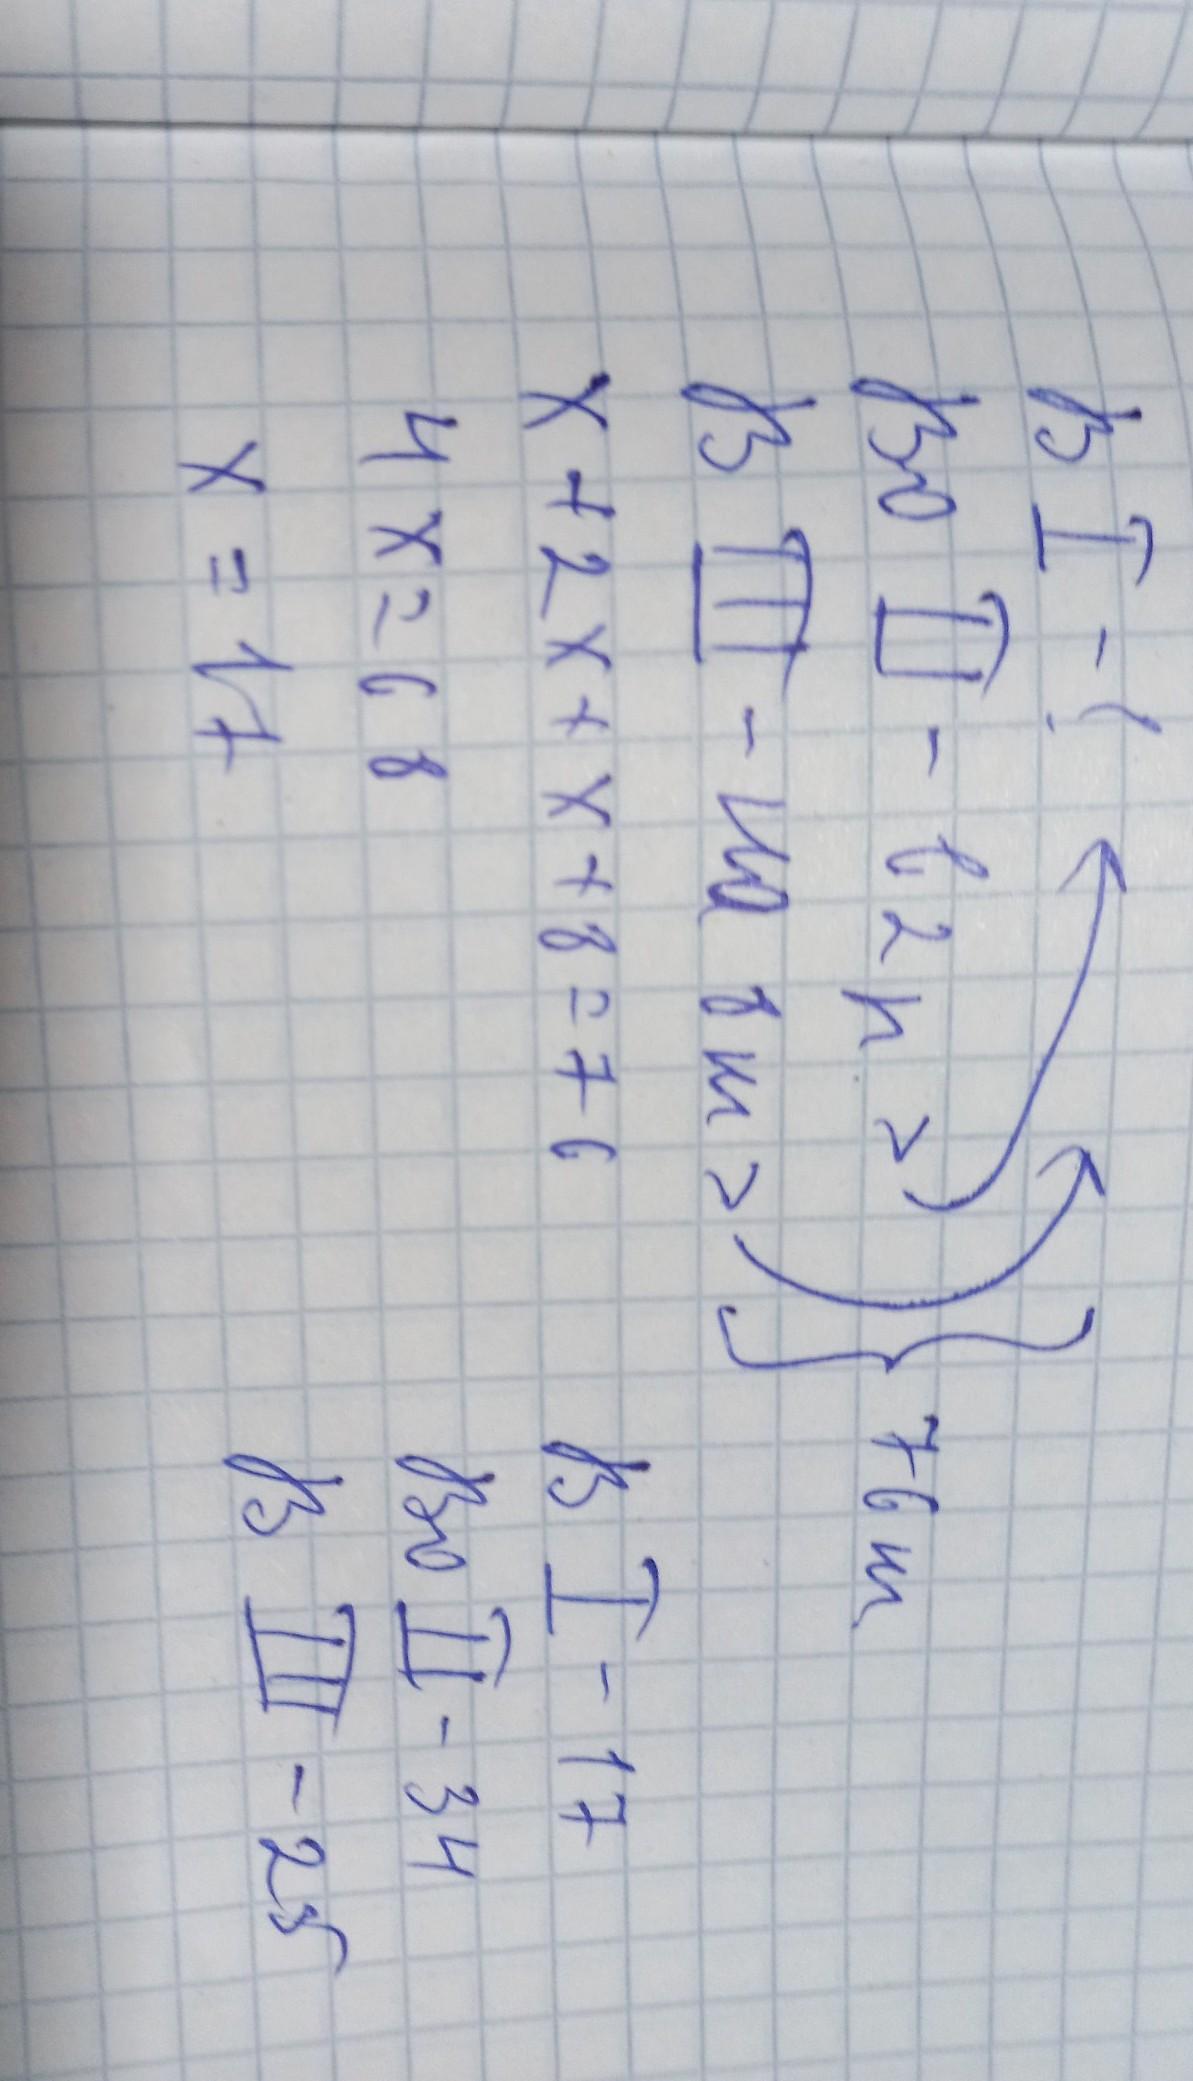 В I - ?
Во II - в 2 р >
В III - на 8 т >
76 т
x + 2x + x + 8 = 76
4x = 68
x = 17
В I - 17
Во II - 34
В III - 25